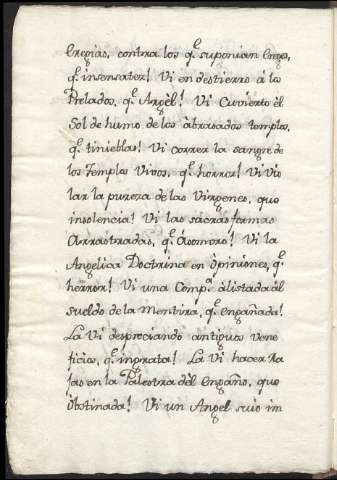 Eregias, contra los q.e suponian Ereges,
q.e insensatez! Vi en destierro á los
Prelados, q.e Argèl! Vi Cuvierto èl
Sol de humo de los àbrasados templos,
q.e tinieblas! Vi correr la sangre de
los Templos Vivos, q.e horror! Vi Vio
lar la pureza de las Virgenes, que
insolencia! Vi las sacras formas
Arrastradas, q.e àsombro! Vi la
Angelica Doctrina en òpiniones, q.e
herror! Vi una Comp.a àlistada àl
sueldo de la Mentira, q.e engañada!
La Vi despreciando antiguos vene
ficios, q.e ingrata! La vi hacer Ga
las en la Palestra dèl Engaño, que
òbstinada! Vi un Angel suio im